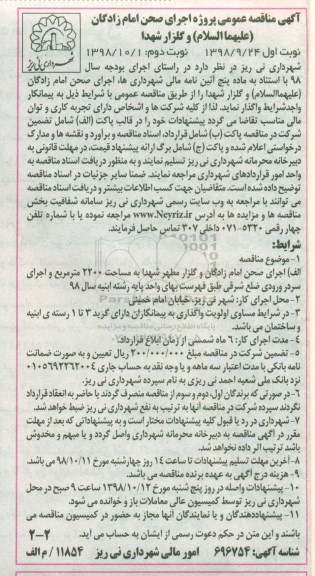 آگهی مناقصه عمومی پروژه اجرای صحن امام زادگان
(علیهما السلام) و گلزار شهدا
نوبت اول ۱۳۹۸/۹/۲۴ نوبت دوم: ۱۳۹۸/۱۰/۱
شهرداری نی ریز
شهرداری نی ریز در نظر دارد در راستای اجرای بودجه سال
۹۸ با استناد به ماده پنج آئین نامه مالی شهرداری ها، اجرای صحن امام زادگان
(علیهماالسلام) و گلزار شهدا را از طریق مناقصه عمومی با شرایط ذیل به پیمانکار
واجدشرایط واگذار نماید. لذا از کلیه شرکت ها و اشخاص دارای تجربه کاری و توان
مالی مناسب تقاضا می گردد پیشنهادات خود را در قالب پاکت (الف) شامل تضمین
شرکت در مناقصه پاکت (ب) شامل قرارداد، اسناد مناقصه و برآورد و نقشه ها و مدارک
درخواستی اعلام شده و پاکت (ج) شامل برگ ارائه پیشنهاد قیمت، در مهلت قانونی به
دبیرخانه محرمانه شهرداری نی ریز تسلیم نمایند و به منظور دریافت اسناد مناقصه به
واحد امور قراردادهای شهرداری مراجعه نمایند. ضمنا سایر جزئیات در اسناد مناقصه
توضیح داده شده است. متقاضیان جهت کسب اطلاعات بیشتر و دریافت اسناد مناقصه
می توانند با مراجعه به وب سایت رسمی شهرداری نی ریز سامانه شفافیت بخش
مناقصه ها و مزایده ها به آدرس www.Neyriz.ir مراجعه نموده یا با شماره تلفن
چهار رقمی ۵۳۲۰-۰۷۱ داخلی ۳۰۷ تماس حاصل فرمایند.
شرایط:
۱- موضوع مناقصه
الف) اجرای صحن امام زادگان و گلزار مطهر شهدا به مساحت ۲۲۰۰ مترمربع و اجرای
سردر ورودی ضلع شرقی طبق فهرست بهای واحد پایه رشته ابنیه سال ۹۸
۲- محل اجرای کار: شهر نی ریز، خیابان امام خمینی
۳- در شرایط مساوی اولویت واگذاری به پیمانکاران دارای گرید ۳ تا ۱ رسته ی ابنیه
و ساختمان می باشد.
۴- مدت اجرای کار: ۶ ماه شمسی از زمان ابلاغ قرارداد.
۵- تضمین شرکت در مناقصه مبلغ ۲۰۰/۰۰۰/۰۰۰ ریال تعیین و به صورت ضمانت
نامه بانکی با مدت اعتبار سه ماهه و یا وجه نقد به حساب جاری ۰۱۰۵۶۹۲۲۶۲۰۰۴
نزد بانک ملی شعبه احمد نی ریزی به نام سپرده شهرداری نی ریز.
۶- در صورتی که برندگان اول، دوم و سوم از مناقصه منصرف گردند یا حاضر به انعقاد قرارداد
نگردند سپرده شرکت در مناقصه آنها به ترتیب به نفع شهرداری نی ریز ضبط خواهد شد.
۷- شهرداری در رد یا قبول کلیه پیشنهادات مختار است و به پیشنهاداتی که بعد از مهلت
مقرر در آگهی مناقصه به دبیرخانه محرمانه شهرداری واصل گردد و یا مبهم و مخدوش
باشد ترتیب اثر داده نخواهد شد.
۸- آخرین مهلت تسلیم پیشنهادات تا ساعت ۱۴ روز چهارشنبه مورخ ۹۸/۱۰/۱۱ می باشد.
۹- هزینه درج آگهی به عهده برنده مناقصه می باشد.
۱۰- پیشنهادات واصله در روز پنج شنبه مورخ ۱۳۹۸/۱۰/۱۲ ساعت ۹ صبح در محل
شهرداری نی ریز توسط کمیسیون عالی معاملات باز و خوانده می شود.
۱۱- پیشنهاددهندگان و یا نمایندگان آنها مجاز به حضور در کمیسیون مناقصه می
باشند و این متن در حکم دعوت رسمی از ایشان به حساب می آید. ۲-۲
شناسه آگهی: ۶۹۶۷۵۴ امور مالی شهرداری نی ریز ۱۱۸۵۴ / م الف